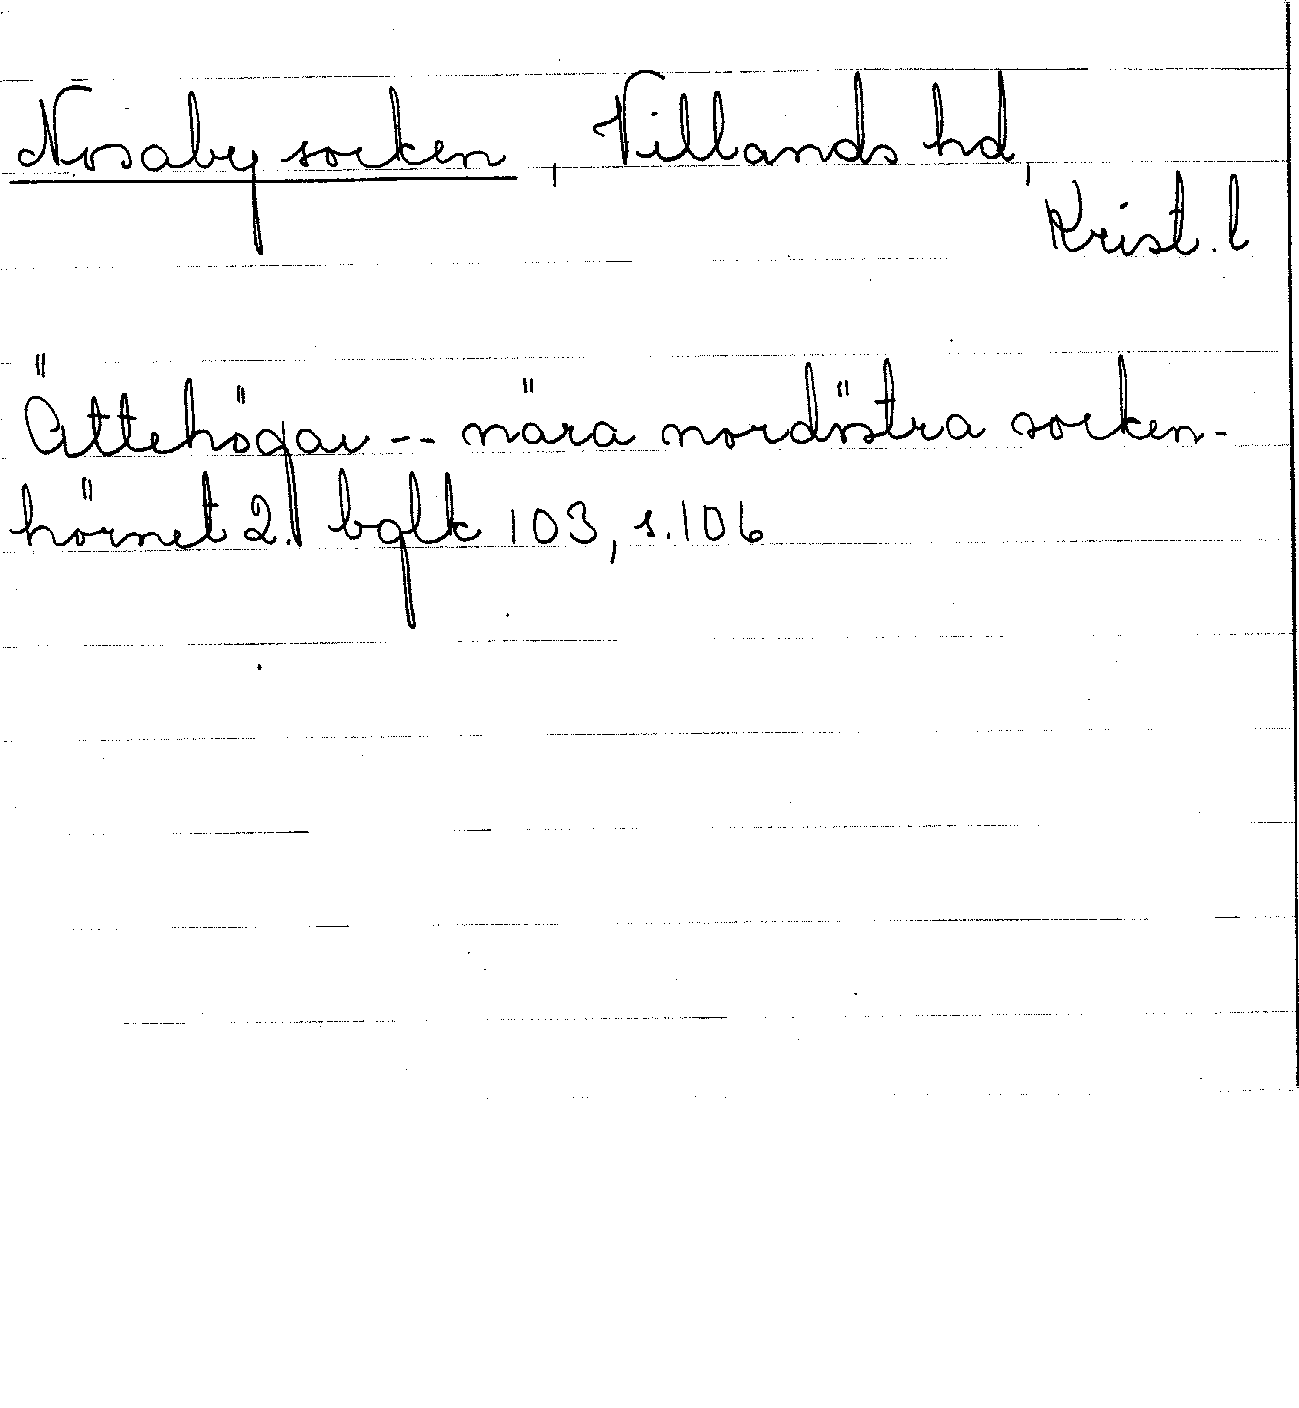 Nosaby socken, Villands hd,
Krist. l
Ättehögar -- nära nordöstra socken-
hörnet 2. bglk 103, s. 106